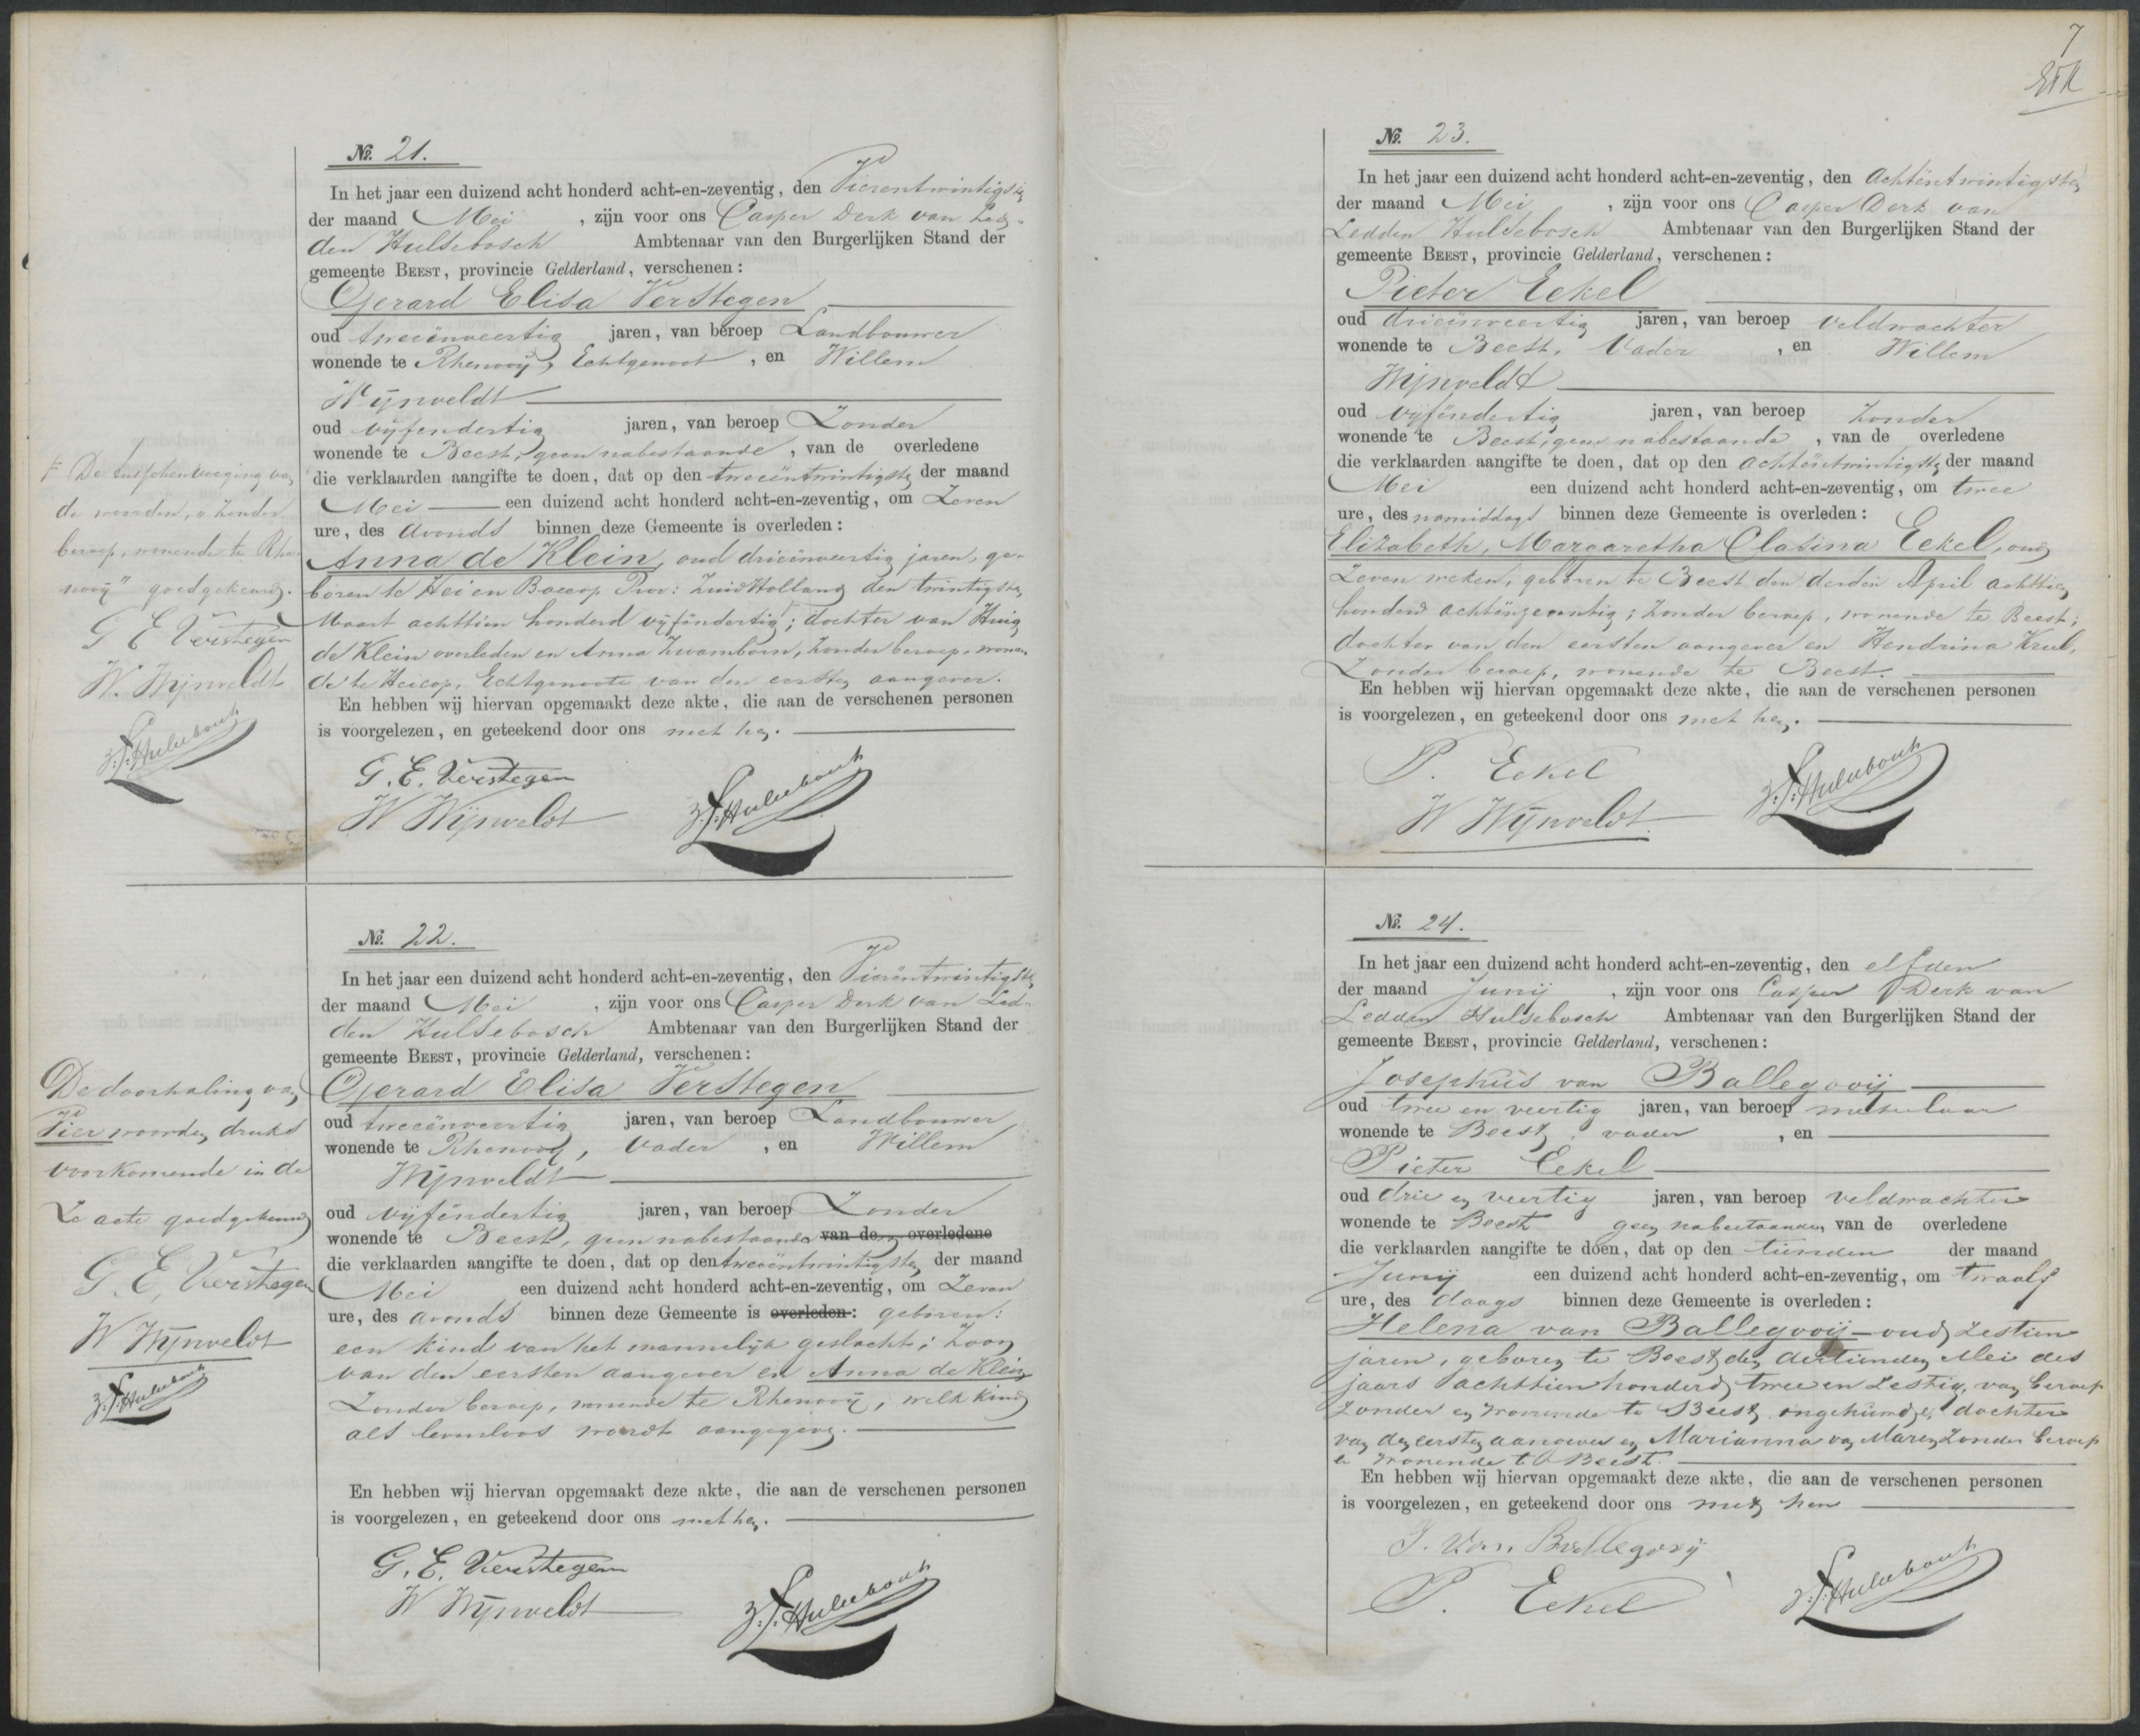 №. 21.
In het jaar een duizend acht honderd acht-en-zeventig, den Vierentwintigste
der maand Mei , zijn voor ons Casper Derk van Led-
den Hulsebosch Ambtenaar van den Burgerlijken Stand der
gemeente BEEST, provincie Gelderland, verschenen:
Gerard Elisa VerStegen
oud tweeënveertig jaren, van beroep Landbouwer
wonende te Rhenooij, Echtgenoot , en Willem
Wijnveldt
oud vijfendertig jaren, van beroep Zonder
wonende te Beest, geen nabestaande , van de overledene
die verklaarden aangifte te doen, dat op den tweeëntwintigste der maand
Mei een duizend acht honderd acht-en-zeventig, om Zeven
ure, des avonds binnen deze Gemeente is overleden:
Anna de Klein, oud drieënveertig jaren, ge-
boren te Hei en Boecop Prov: Zuid Holland den twintigste
Maart achttien honderd vijfëndertig; dochter van Huig
de Klein overleden en Anna Zwamborn, Zonder beroep, wonen-
de te Heicop, Echtgenoote van den eersten aangever.
En hebben wij hiervan opgemaakt deze akte, die aan de verschenen personen
is voorgelezen, en geteekend door ons met hen.
G. E. Verstegen
W Wijnveldt
De tusschenvoeging van
de woorden, "Zonder
beroep, wonende te Rhe-
nooij" goedgekeurd.
G E Verstegen
W. Wijnveldt
№. 22.
In het jaar een duizend acht honderd acht-en-zeventig, den Vierëntwintigste
der maand Mei , zijn voor ons Casper Derk van Led-
den Hulsebosch Ambtenaar van den Burgerlijken Stand der
gemeente BEEST, provincie Gelderland, verschenen:
Gerard Elisa VerStegen
oud tweeënveertig jaren, van beroep Landbouwer
wonende te Rhenooij, Vader , en Willem
Wijnveldt
oud vijfëndertig jaren, van beroep Zonder
wonende te Beest, geen nabestaande van de overledene
die verklaarden aangifte te doen, dat op den tweeëntwintigste der maand
Mei een duizend acht honderd acht-en-zeventig, om Zeven
ure, des avonds binnen deze Gemeente is overleden: geboren:
een kind van het mannelijk geslacht; Zoon
van den eersten aangever en Anna de Klein
Zonder beroep, wonende te Rhenooij, welk kind
als levenloos wordt aangegeven.
En hebben wij hiervan opgemaakt deze akte, die aan de verschenen personen
is voorgelezen, en geteekend door ons met hen.
G. E. Verstegen
W Wijnveldt
De doorhaling van
Vier woorden druks
voorkomende in de
Ze acte goedgekeurd
G. E. Verstegen
W Wijnveldt
7
№. 23.
In het jaar een duizend acht honderd acht-en-zeventig, den Achtëntwintigste
der maand Mei , zijn voor ons Casper Derk van
Ledden Hulsebosch Ambtenaar van den Burgerlijken Stand der
gemeente BEEST, provincie Gelderland, verschenen:
Pieter Eekel
oud drieënveertig jaren, van beroep veldwachter
wonende te Beest, Vader , en Willem
Wijnveldt
oud vijfëndertig jaren, van beroep Zonder
wonende te Beest, geen nabestaande , van de overledene
die verklaarden aangifte te doen, dat op den achtëntwintigste der maand
Mei een duizend acht honderd acht-en-zeventig, om twee
ure, des namiddags binnen deze Gemeente is overleden:
Elizabeth, Margaretha Clasina Eekel, oud
Zeven weken, geboren te Beest den derden April achttien
honderd achtënzeventig; Zonder beroep, wonende te Beest;
dochter van den eersten aangever en Hendrina Kreel,
Zonder beroep, wonende te Beest.
En hebben wij hiervan opgemaakt deze akte, die aan de verschenen personen
is voorgelezen, en geteekend door ons met hen.
P. Eekel
W Wijnveldt
№. 24.
In het jaar een duizend acht honderd acht-en-zeventig, den elfden
der maand Junij , zijn voor ons Casper Derk van
Ledden Hulsebosch Ambtenaar van den Burgerlijken Stand der
gemeente BEEST, provincie Gelderland, verschenen:
Josephus van Ballegooij
oud twee en veertig jaren, van beroep metselaar
wonende te Beest, vader , en
Pieter Eekel
oud drie en veertig jaren, van beroep veldwachter
wonende te Beest geen nabestaanden van de overledene
die verklaarden aangifte te doen, dat op den tienden der maand
Junij een duizend acht honderd acht-en-zeventig, om twaalf
ure, des daags binnen deze Gemeente is overleden:
Helena van Ballegooij - oud zestien
jaren, geboren te Beest den dertienden Mei des
jaars achttienhonderd twee en zestig, van beroep
zonder en wonende te Beest, ongehuwd, dochter
van den eersten aangever en Marianna van Maren, Zonder beroep
en wonende te Beest.
En hebben wij hiervan opgemaakt deze akte, die aan de verschenen personen
is voorgelezen, en geteekend door ons met hen
J. Van Ballegooij
P. Eekel